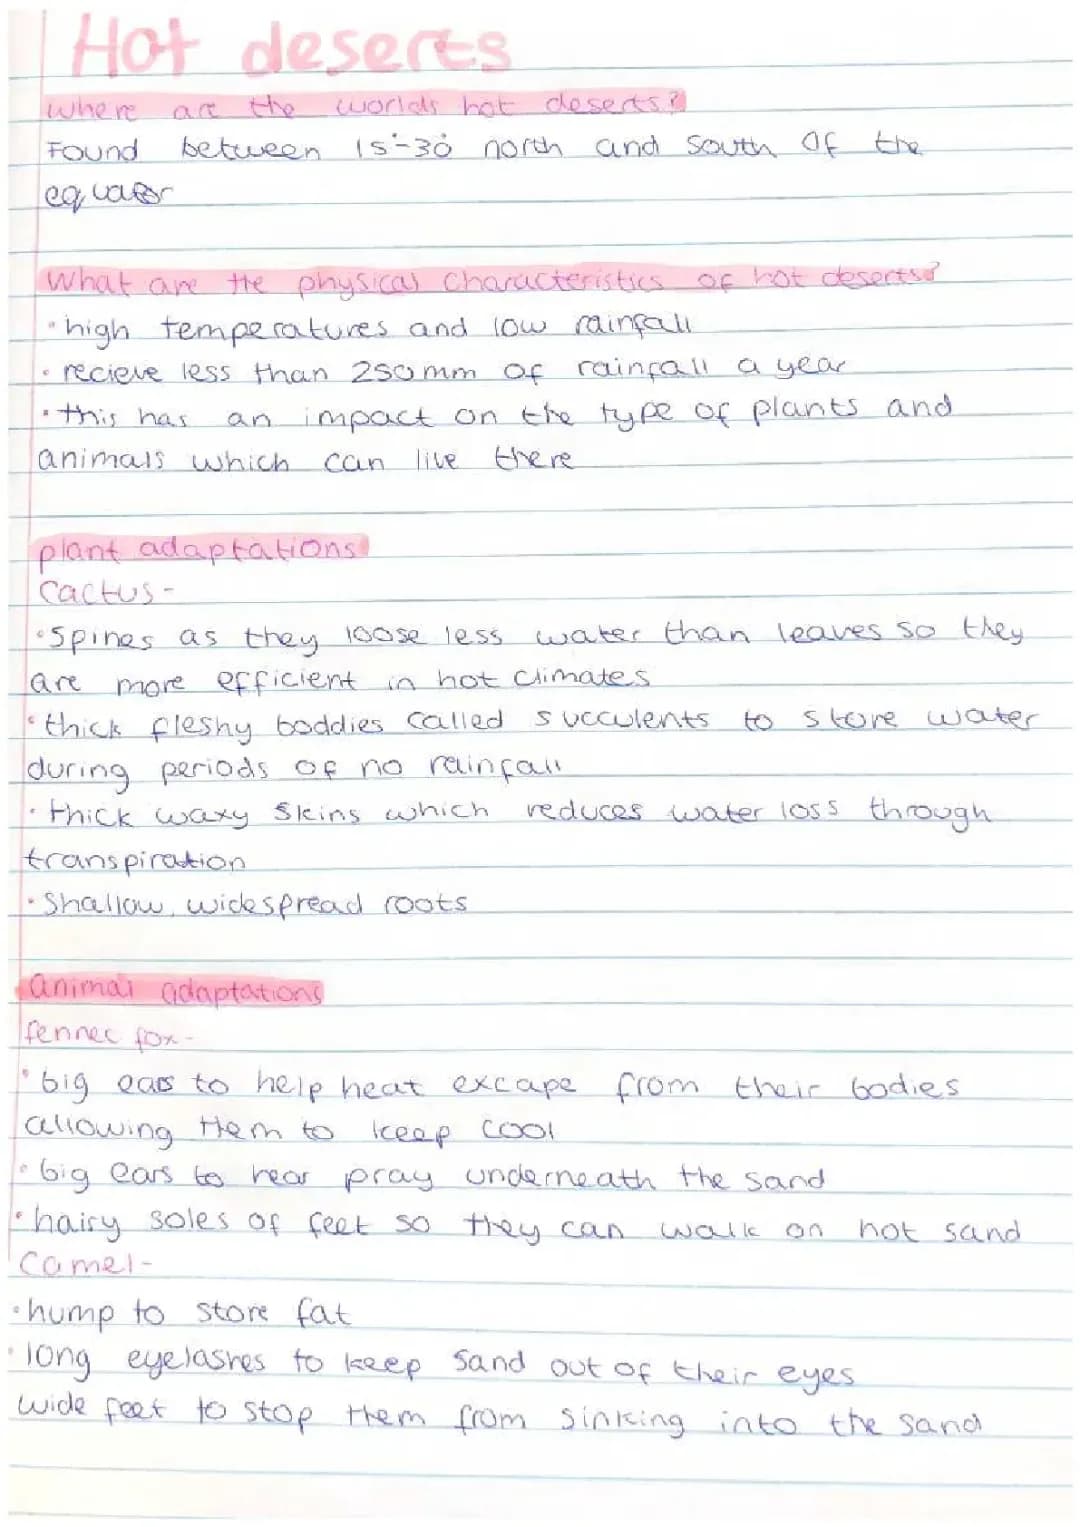 Hot deserts
where are the worlds hot deserts?
Found between 15°-30° north and south of the
equator
What are the physical characteristics of hot deserts?
• high temperatures and low rainfall
• recieve less than 250mm of rainfall a year
• this has an impact on the type of plants and
animals which can live there
plant adaptations
Cactus-
• Spines as they loose less water than leaves so they
are more efficient in hot climates
• thick fleshy boddies called succulents to store water
during periods of no rainfall
• thick waxy skins which reduces water loss through
transpiration
• Shallow, widespread roots
animal adaptations
fennec fox-
• big ears to help heat excape from their bodies
allowing them to keep cool
• big ears to hear pray underneath the sand
• hairy soles of feet so they can walk on hot sand
Camel-
• hump to store fat
• long eyelashes to keep sand out of their eyes
wide feet to stop them from sinking into the sand